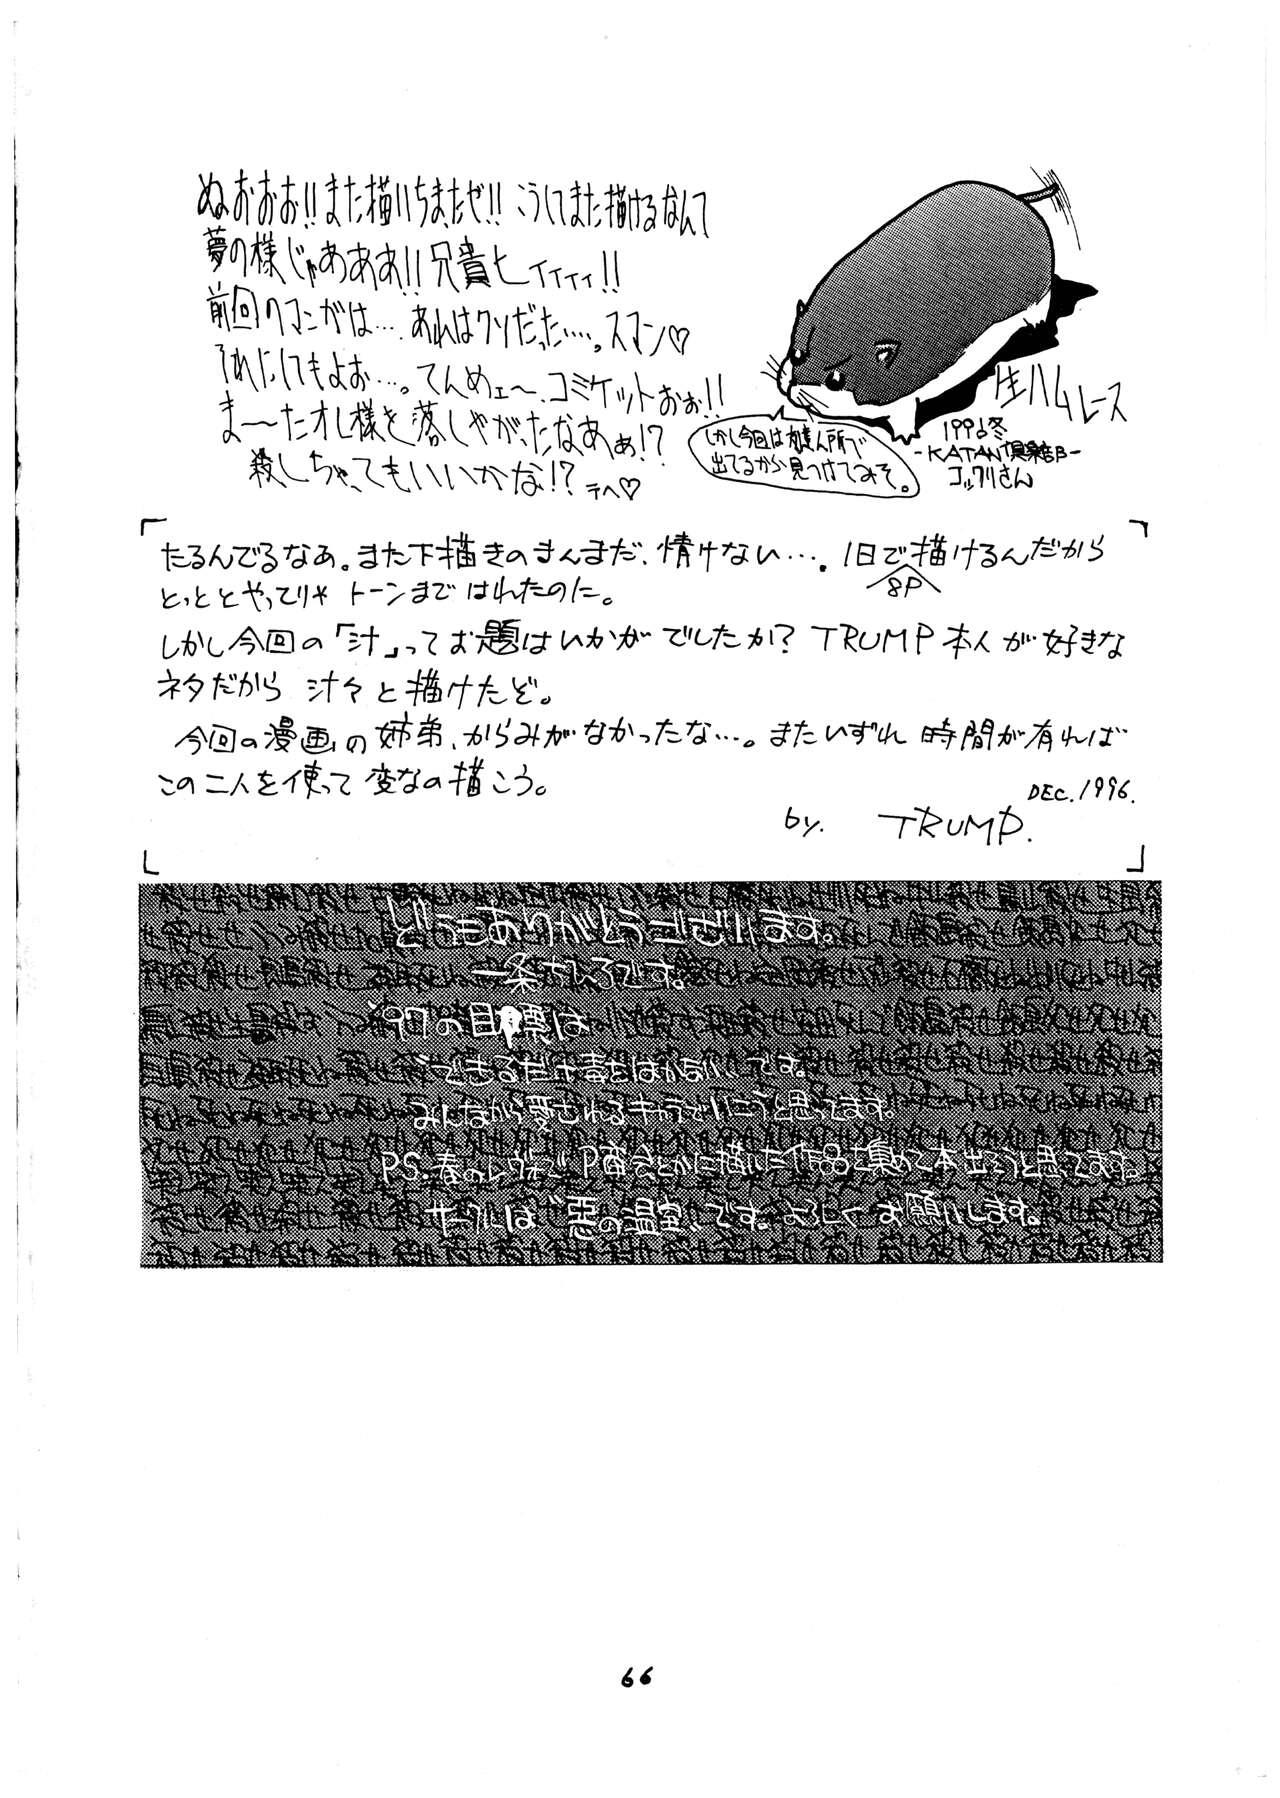 ぬおおお!!また描いちまたぜ!!こうしてまた描けるなんて
夢の様じゃあああ!!兄貴ヒィィィィ!!
前回のマンガは…あれはクソだった……。スマン♡
それにしてもよお…。てんめェ〜、コミケットおぉ!!
ま〜たオレ様を落しやがったなあぁ!?
殺しちゃってもいいかな!?テヘ♡
しかし今回は
所で
出てるから見つけてみそ。
生ハムレース
1996冬
-KATAN倶楽部-
コックリさん
「たるんでるなあ。また下描きのまんまだ、情けない…。1日で描けるんだから
8P
とっととやってりゃ トーンまではれたのに。
しかし今回の「汁」ってお題はいかがでしたか?TRUMP本人が好きな
ネタだから 汁々と描けたぞ。
今回の漫画の姉弟、からみがなかったな…。またいずれ 時間が有れば
この二人を使って変なの描こう。
DEC.1996.
by. TRUMP.」
どうもありがとうございます。
一条さひろです。
'97の目標は
できるだけ毒をはかないです。
みんなから愛されるキャラでいこうと思ってます。
PS.春のレヴォで
描いた作品集めて本出そうと思ってます。
サークルは"悪の温室"です。よろしくお願いします。
66